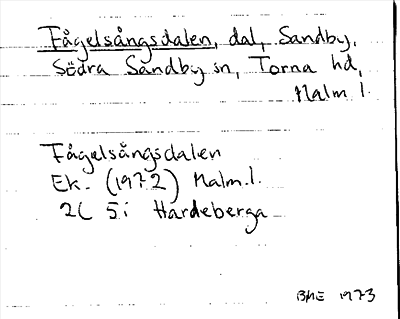 Fågelsångsdalen, dal, Sandby,
Södra Sandby sn, Torna hd,
Malm. l.
Fågelsångsdalen
Ek. (1972) Malm. l.
2C 5i Hardeberga
BME 1973